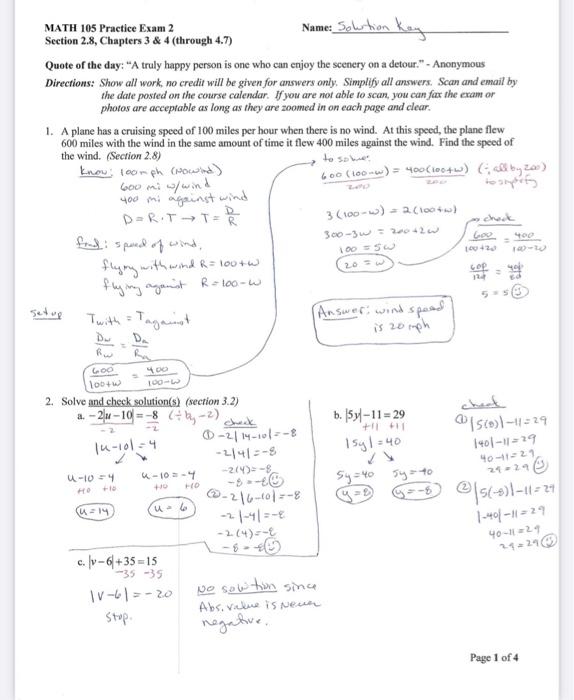 MATH 105 Practice Exam 2
Name: Solution Key
Section 2.8, Chapters 3 & 4 (through 4.7)
Quote of the day: "A truly happy person is one who can enjoy the scenery on a detour." - Anonymous
Directions: Show all work, no credit will be given for answers only. Simplify all answers. Scan and email by
the date posted on the course calendar. If you are not able to scan, you can fax the exam or
photos are acceptable as long as they are zoomed in on each page and clear.
1. A plane has a cruising speed of 100 miles per hour when there is no wind. At this speed, the plane flew
600 miles with the wind in the same amount of time it flew 400 miles against the wind. Find the speed of
the wind. (Section 2.8)
Know: 100mph (no wind)
600 mi w/wind
400 mi against wind
D=R·T → T=D/R
find: speed of wind.
flying with wind R=100+w
flying against R=100-w
Setup
Twith = Tagainst
Dw/Rw = Da/Ra
600/(100+w) = 400/(100-w)
to solve:
600(100-w)/200 = 400(100+w)/200 (÷ all by 200)
to simplify
3(100-w)=2(100+w)
300-3w=200+2w
100=5w
20=w
check
600/(100+20) = 400/(100-20)
600/120 = 400/80
5=5
Answer: wind speed
is 20 mph
2. Solve and check solution(s) (section 3.2)
a. -2|u-10|=-8 (÷ by -2)
-2 -2
|u-10|=4
u-10=4 u-10=-4
+10 +10 +10 +10
u=14 u=6
check
① -2|14-10|=-8
-2|4|=-8
-2(4)=-8
-8=-8
② -2|6-10|=-8
-2|-4|=-8
-2(4)=-8
-8=-8
b. |5y|-11=29
+11 +11
|5y|=40
5y=40 5y=-40
y=8 y=-8
check
① |5(8)|-11=29
|40|-11=29
40-11=29
29=29
② |5(-8)|-11=29
|-40|-11=29
40-11=29
29=29
c. |v-6|+35=15
-35 -35
|v-6|=-20
Stop.
No solution since
Abs. value is never
negative.
Page 1 of 4